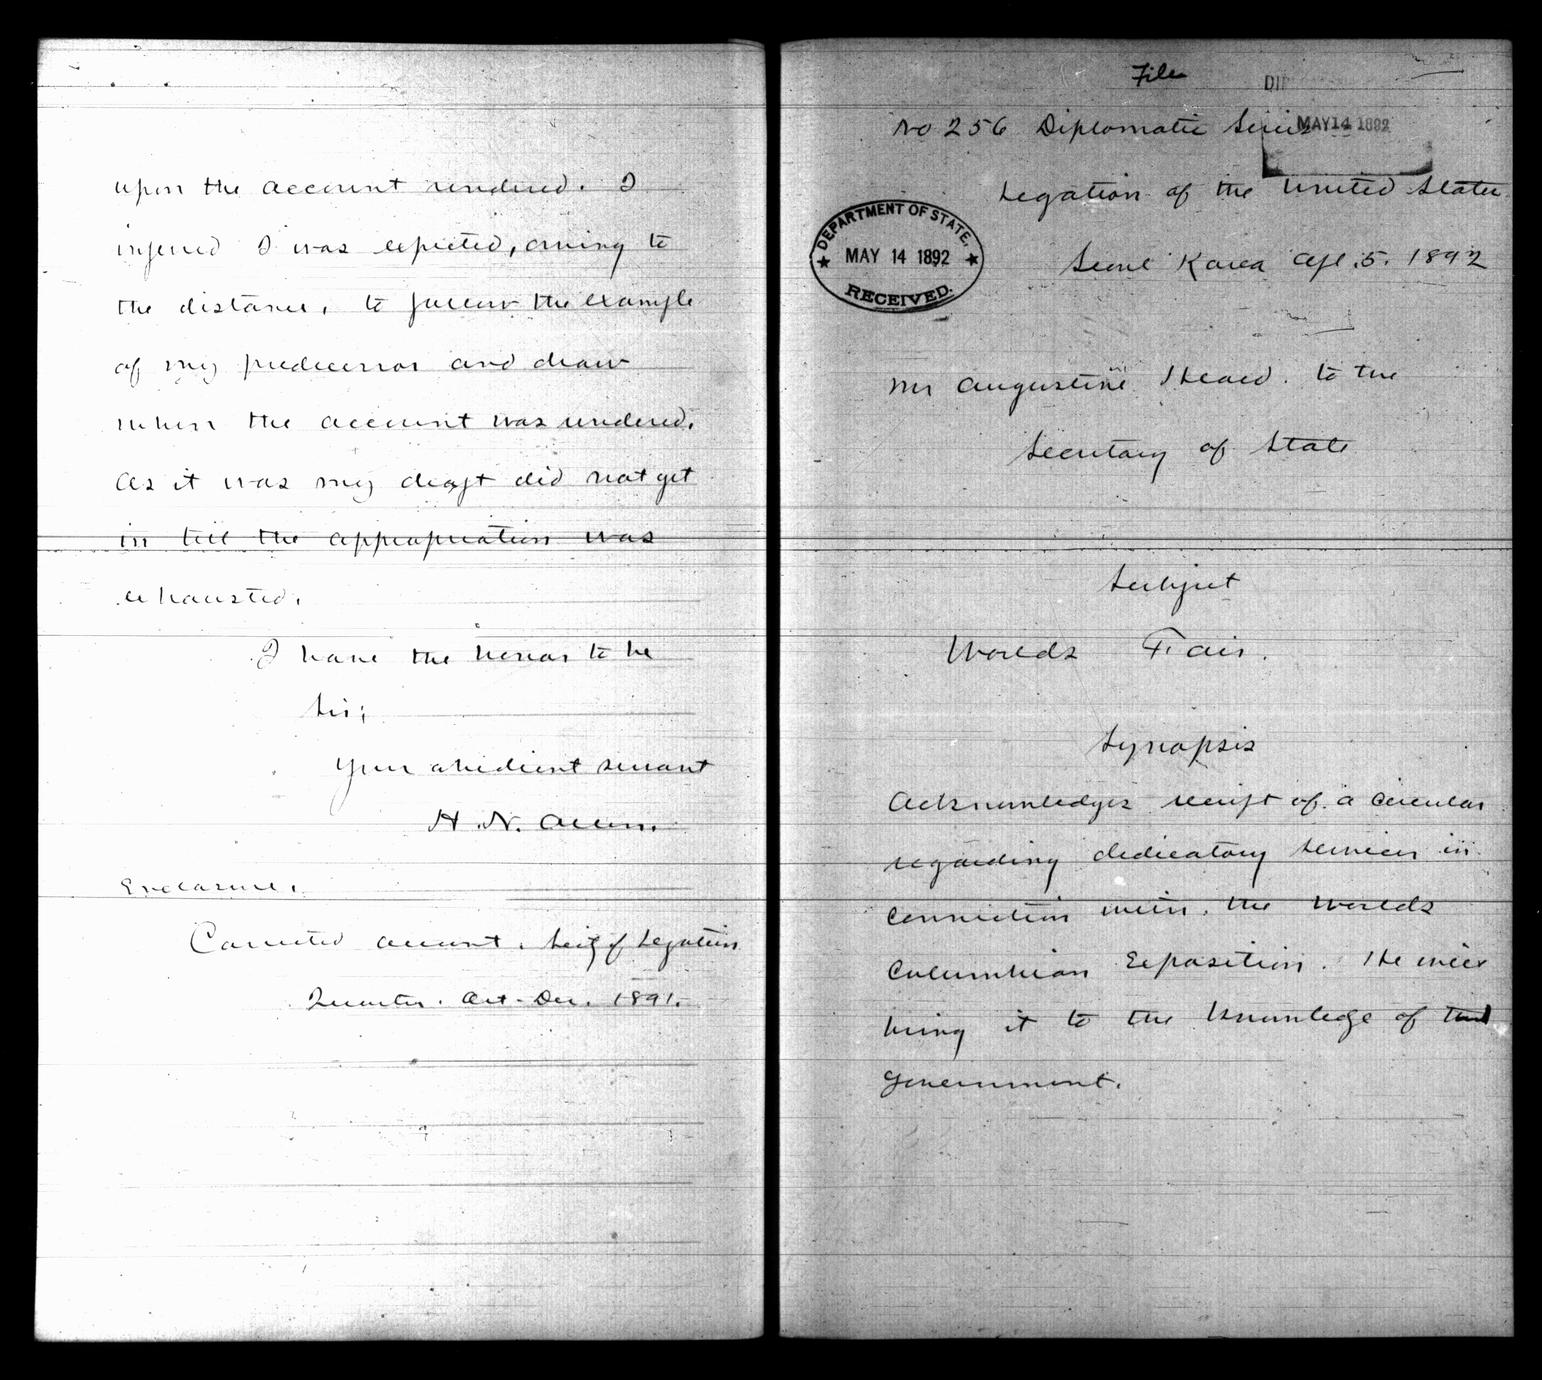 upon the account rendered. I
inferred I was expected, owing to
the distance, to follow the example
of my predecessor and draw
when the account was rendered.
As it was my draft did not get
in till the appropriation was
exhausted.
I have the honor to be
Sir;
Your obedient servant
H. N. Allen.
Enclosure.
Corrected account. Secy of Legation
Quarter. Oct-Dec. 1891.
File
MAY 14 1892
No 256 Diplomatic Series
Legation of the United States
DEPARTMENT OF STATE,
MAY 14 1892
RECEIVED.
Seoul Korea Apl. 5. 1892
Mr Augustine Heard. to the
Secretary of State
Subject
Worlds Fair.
Synopsis
Acknowledges receipt of a circular
regarding dedicatory services in
connection with the Worlds
Columbian Exposition. He will
bring it to the knowledge of
Government.